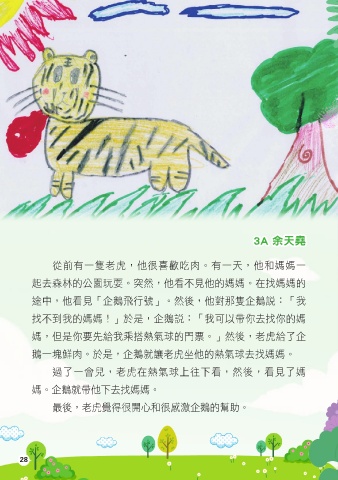 3A 余天堯
從前有一隻老虎，他很喜歡吃肉。有一天，他和媽媽一
起去森林的公園玩耍。突然，他看不見他的媽媽。在找媽媽的
途中，他看見「企鵝飛行號」。然後，他對那隻企鵝説：「我
找不到我的媽媽！」於是，企鵝説：「我可以帶你去找你的媽
媽，但是你要先給我乘搭熱氣球的門票。」然後，老虎給了企
鵝一塊鮮肉。於是，企鵝就讓老虎坐他的熱氣球去找媽媽。
過了一會兒，老虎在熱氣球上往下看，然後，看見了媽
媽。企鵝就帶他下去找媽媽。
最後，老虎覺得很開心和很感激企鵝的幫助。
28